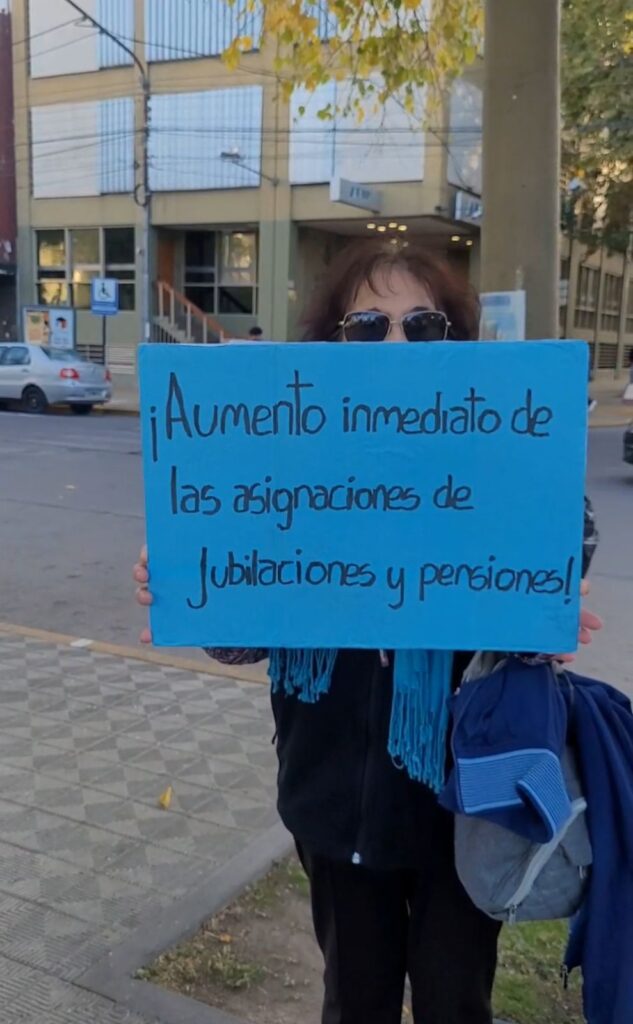 ¡Aumento inmediato de
las asignaciones de
Jubilaciones y pensiones!